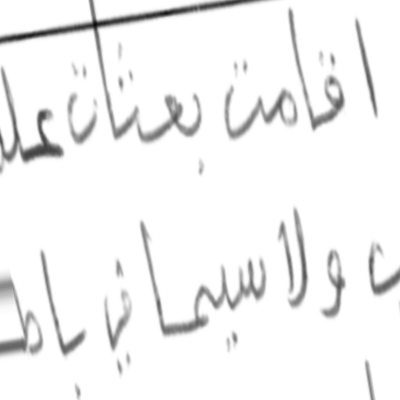 اقامت بعثات عملـ
ولا سيما في باطـ